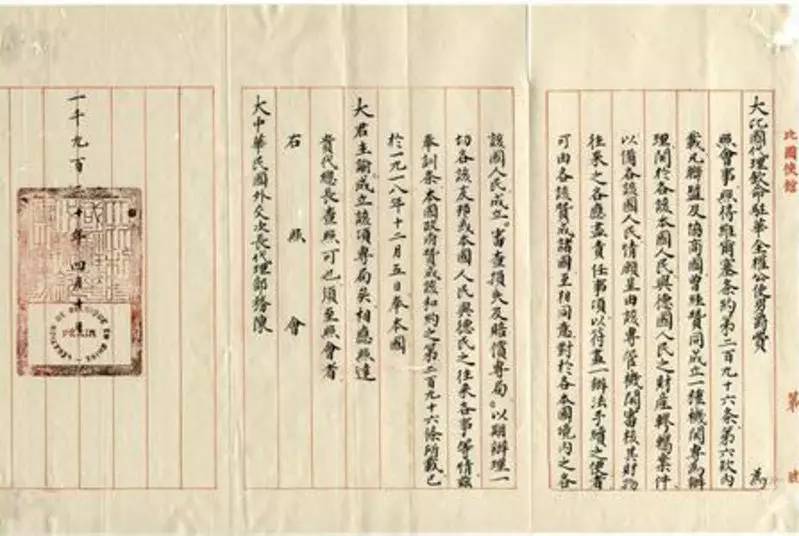 比國使館
第 號
大比國代理欽命駐華全權公使男爵賈 為
照會事照得維爾塞條約第二百九十六條第六欵內
載凡聯盟及協商國曾經贊同成立一種機關專為辦
理關於各該本國人民與德國人民之財產轇轕案件
以備各該國人民情願呈由該專管機關審核其財物
往來之各應盡責任事項以符盡一辦法手續之便者
可由各該贊成諸國互相同意對於各本國境內之各
該國人民成立審查損失及賠償專局以期辦理一
切各該友邦或本國人民與德民之往來各事等情茲
奉訓条本國政府贊成該和約之第二百九十六條所載已
於一九一八年十二月五日奉本國
大君主諭成立該項專局矣相應照達
貴代總長查照可也須至照會者
右照會
大中華民國外交次長代理部務陳
一千九百二十年四月十日
PEKIN